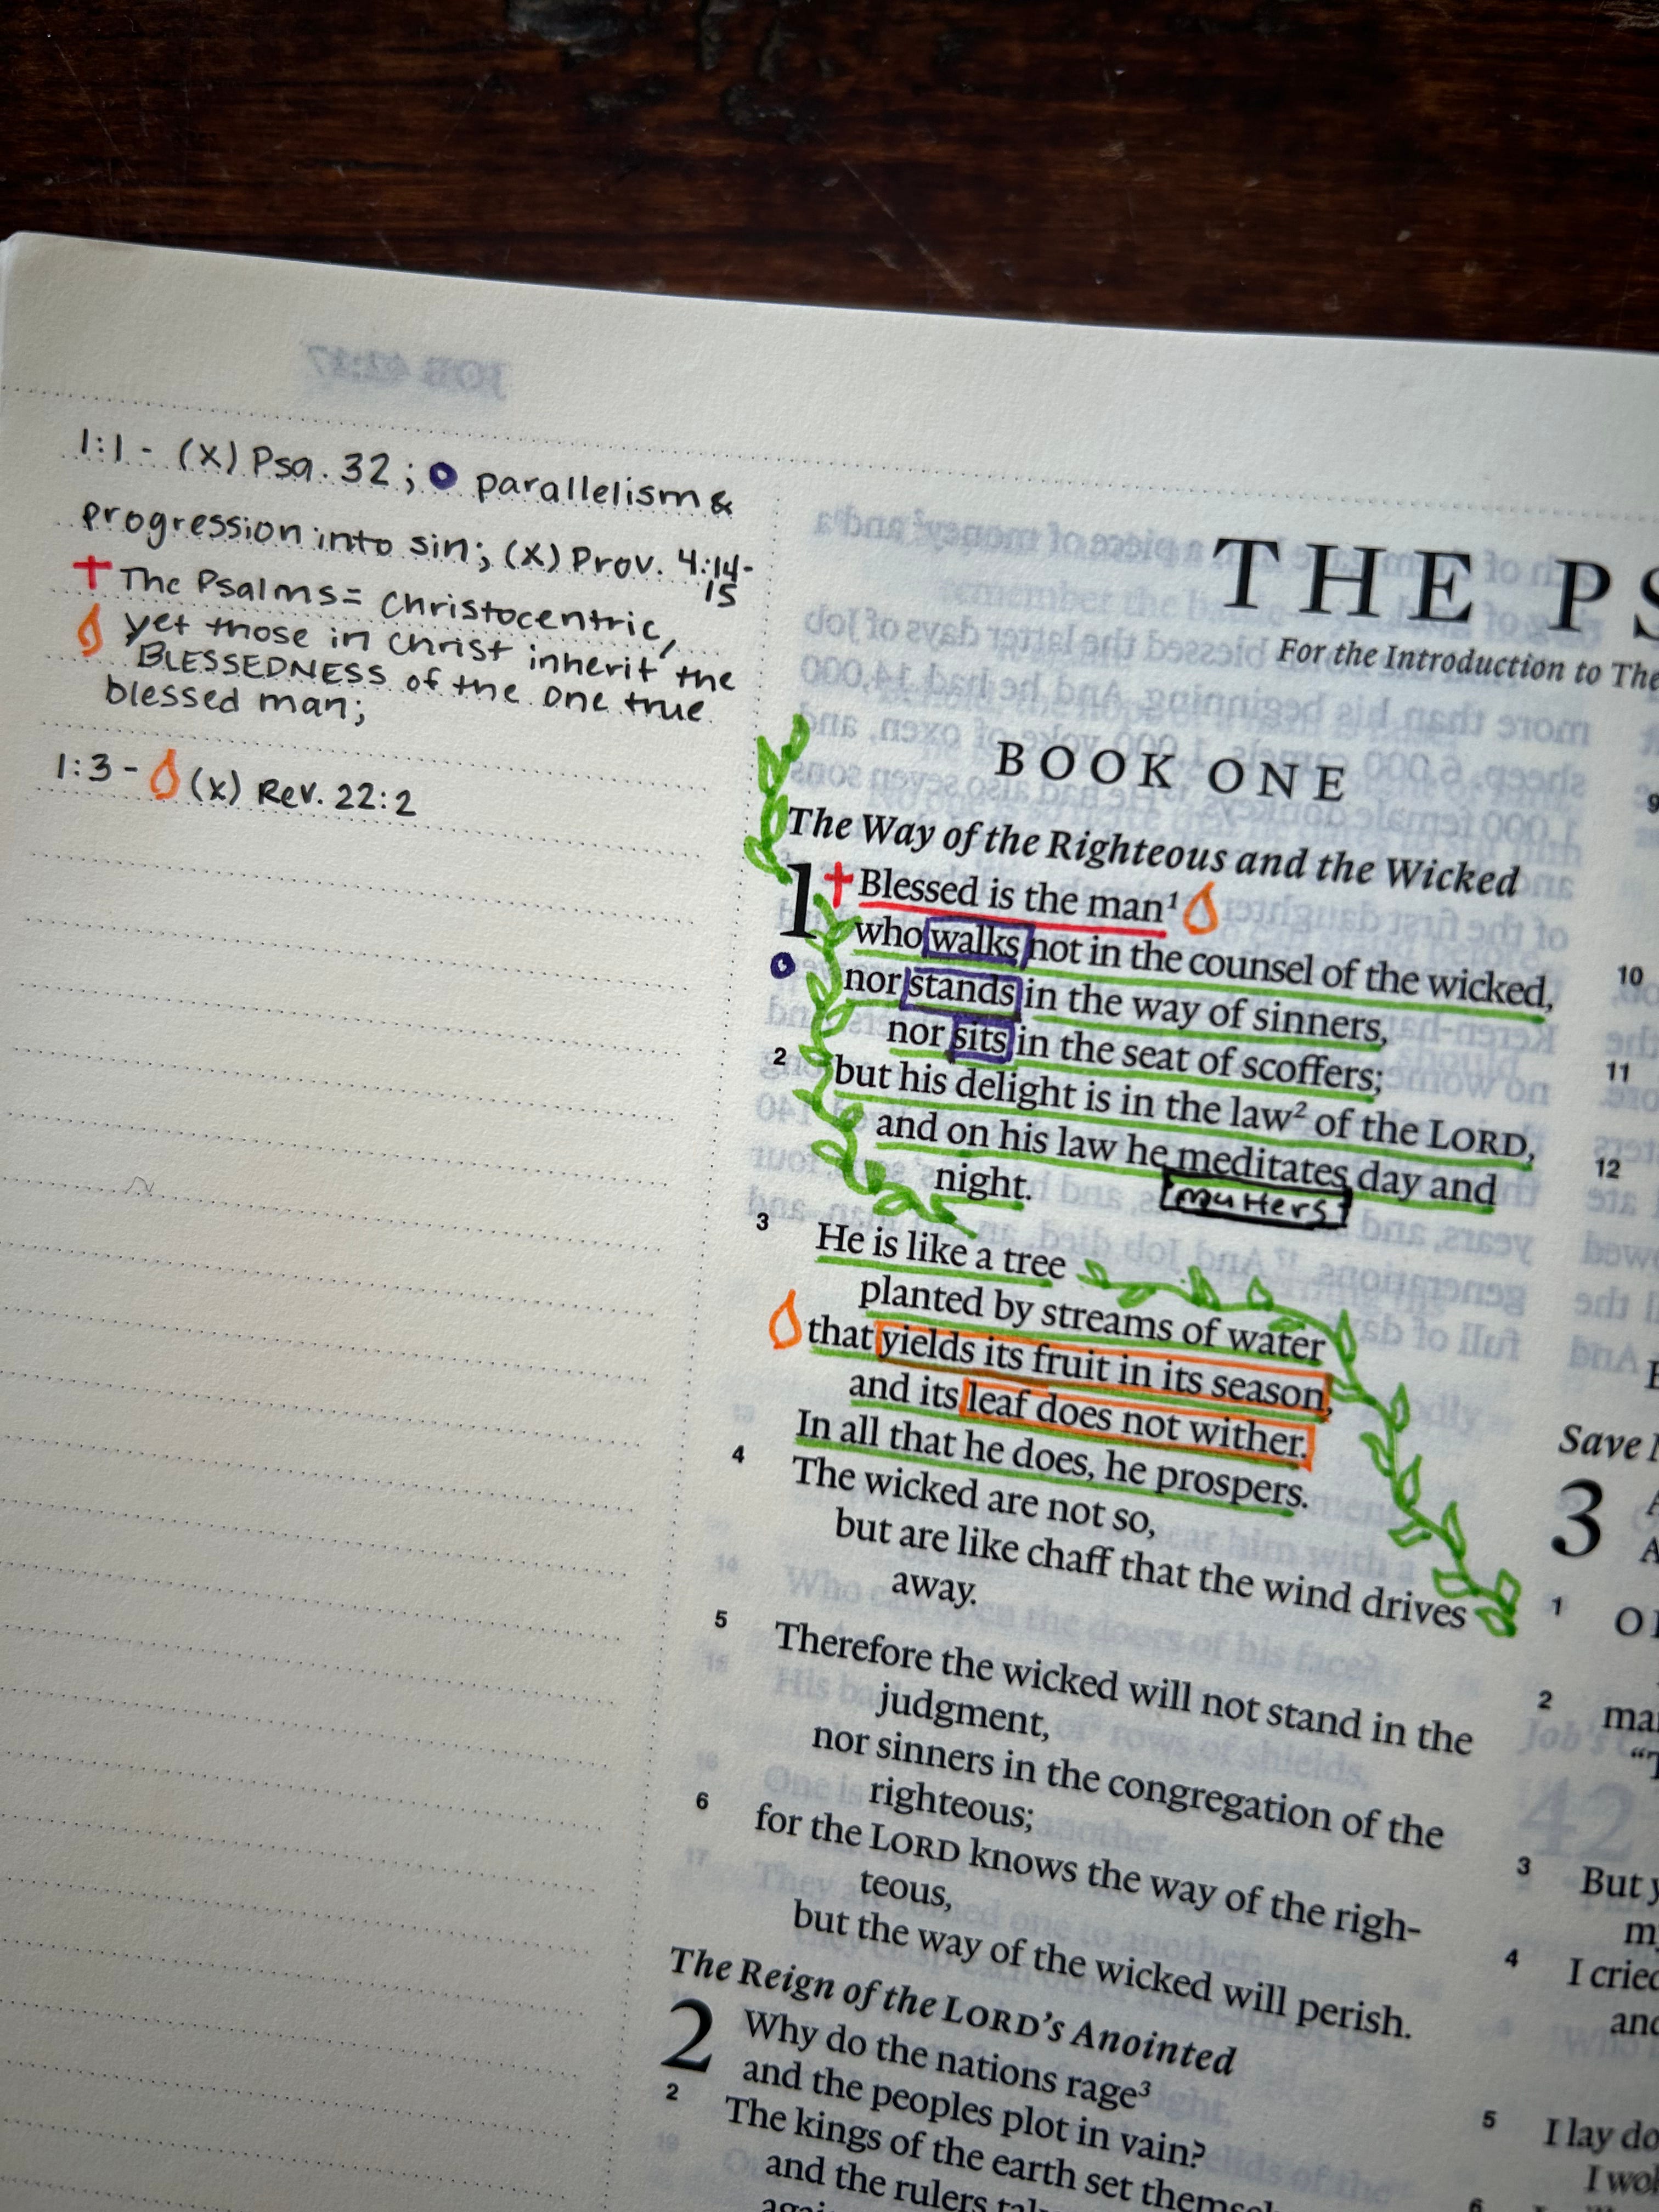 1:1 - (x) Psa. 32; parallelism &
progression into sin; (x) Prov. 4:14-
15
The Psalms = Christocentric,
yet those in Christ inherit the
BLESSEDNESS of the one true
blessed man;
1:3 - (x) Rev. 22:2
THE PS
For the Introduction to The
BOOK ONE
The Way of the Righteous and the Wicked
1 Blessed is the man¹
who walks not in the counsel of the wicked,
nor stands in the way of sinners,
nor sits in the seat of scoffers;
2 but his delight is in the law² of the LORD,
and on his law he meditates day and
mutters
night.
3 He is like a tree
planted by streams of water
that yields its fruit in its season,
and its leaf does not wither.
In all that he does, he prospers.
4 The wicked are not so,
but are like chaff that the wind drives
away.
5 Therefore the wicked will not stand in the
judgment,
nor sinners in the congregation of the
righteous;
6 for the LORD knows the way of the righ-
teous,
but the way of the wicked will perish.
The Reign of the LORD's Anointed
2 Why do the nations rage³
and the peoples plot in vain?
2 The kings of the earth set
and the rulers
9
10
11
12
Save
3
1 O
2
3 But
4 I cried
5 I lay do
6